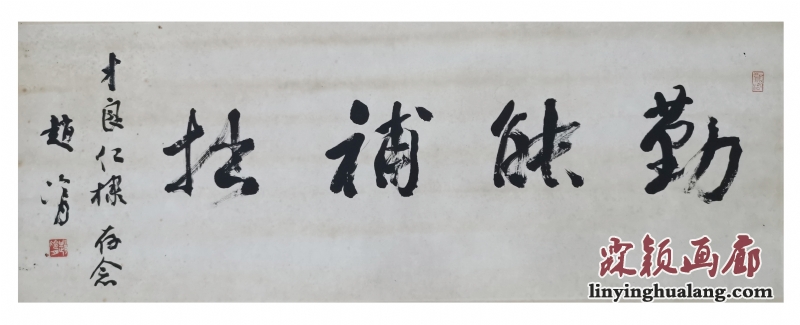 勤能補拙
才良仁棣存念
趙冷月
霖颖画廊
linyinghualang.com